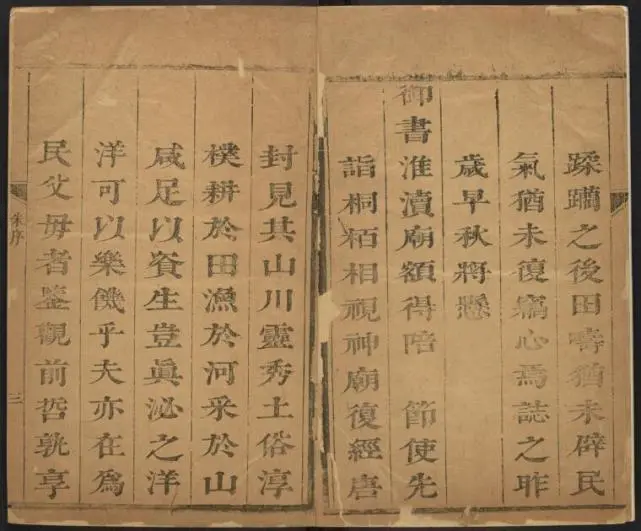 蹂躪之後田疇猶未辟民
氣猶未復竊心焉誌之昨
歲早秋將懸
御書淮瀆廟額得陪 節使先
詣桐栢相視神廟復經唐
封見其山川靈秀土俗淳
樸耕於田漁於河采於山
咸足以資生豈眞泌之洋
洋可以樂饑乎夫亦在為
民父母者鑒觀前哲孰享
朱序
三